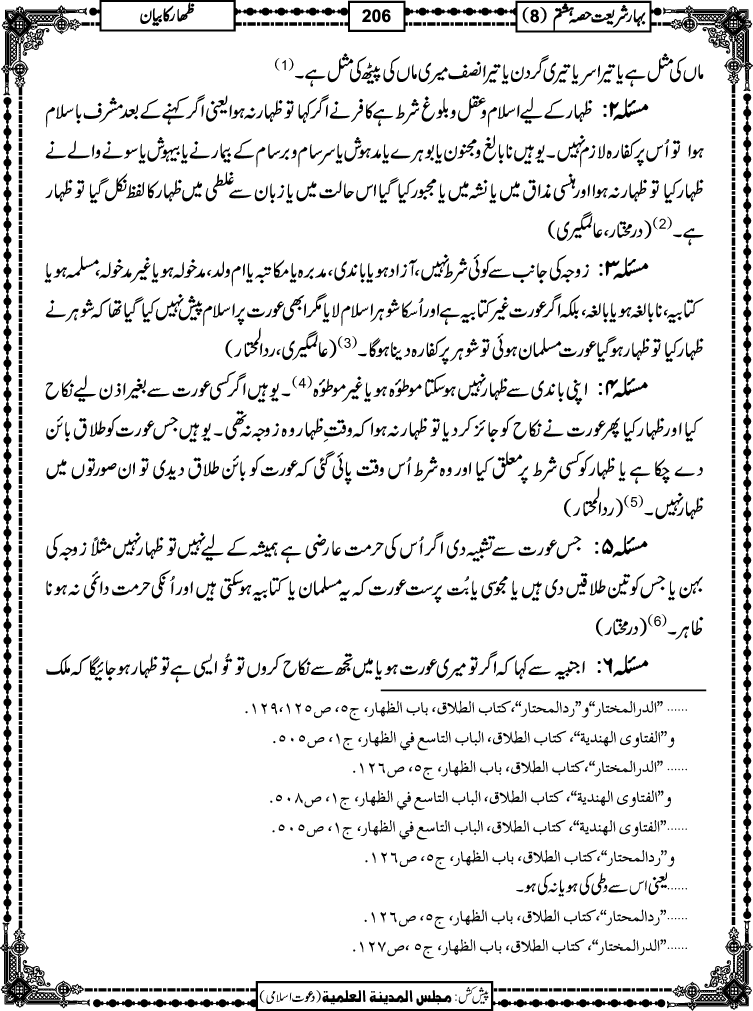 بہارِ شریعت حصہ ہشتم (8)
206
ظہار کا بیان
ماں کی مثل ہے یا تیرا سر یا تیری گردن یا تیرا نصف میری ماں کی پیٹھ کی مثل ہے۔(1)
مسئلہ ۲: ظہار کے لیے اسلام و عقل و بلوغ شرط ہے کافر نے اگر کہا تو ظہار نہ ہوا یعنی اگر کہنے کے بعد مشرف باسلام
ہوا تو اُس پر کفارہ لازم نہیں۔ یوہیں نابالغ و مجنون یا بوہرے یا مدہوش یا سرسام و برسام کے بیمار نے یا بیہوش یا سونے والے نے
ظہار کیا تو ظہار نہ ہوا اور ہنسی مذاق میں یا نشہ میں یا مجبور کیا گیا اس حالت میں یا زبان سے غلطی میں ظہار کا لفظ نکل گیا تو ظہار
ہے۔(2) (درمختار، عالمگیری)
مسئلہ ۳: زوجہ کی جانب سے کوئی شرط نہیں، آزاد ہو یا باندی، مدبرہ یا مکاتبہ یا ام ولد، مدخولہ ہو یا غیر مدخولہ، مسلمہ ہو یا
کتابیہ، نابالغہ ہو یا بالغہ، بلکہ اگر عورت غیر کتابیہ ہے اور اُسکا شوہر اسلام لایا مگر ابھی عورت پر اسلام پیش نہیں کیا گیا تھا کہ شوہر نے
ظہار کیا تو ظہار ہوگیا عورت مسلمان ہوئی تو شوہر پر کفارہ دینا ہوگا۔(3) (عالمگیری، ردالمحتار)
مسئلہ ۴: اپنی باندی سے ظہار نہیں ہوسکتا موطوٴہ ہو یا غیر موطوٴہ(4)۔ یوہیں اگر کسی عورت سے بغیر اذن لیے نکاح
کیا اور ظہار کیا پھر عورت نے نکاح کو جائز کر دیا تو ظہار نہ ہوا کہ وقتِ ظہار وہ زوجہ نہ تھی۔ یوہیں جس عورت کو طلاق بائن
دے چکا ہے یا ظہار کو کسی شرط پر معلق کیا اور وہ شرط اُس وقت پائی گئی کہ عورت کو بائن طلاق دیدی تو ان صورتوں میں
ظہار نہیں۔(5) (ردالمحتار)
مسئلہ ۵: جس عورت سے تشبیہ دی اگر اُس کی حرمت عارضی ہے ہمیشہ کے لیے نہیں تو ظہار نہیں مثلاً زوجہ کی
بہن یا جس کو تین طلاقیں دی ہیں یا مجوسی یا بُت پرست عورت کہ یہ مسلمان یا کتابیہ ہوسکتی ہیں اور اُنکی حرمت دائمی نہ ہونا
ظاہر۔(6) (درمختار)
مسئلہ ۶: اجنبیہ سے کہا کہ اگر تو میری عورت ہو یا میں تجھ سے نکاح کروں تو تُو ایسی ہے تو ظہار ہوجائیگا کہ ملک
...... ”الدرالمختار“ و”ردالمحتار“، کتاب الطلاق، باب الظهار، ج٥، ص١٢٥،١٢٩.
و”الفتاوی الهندية“، كتاب الطلاق، الباب التاسع في الظهار، ج١، ص٥٠٥.
...... ”الدرالمختار“، کتاب الطلاق، باب الظهار، ج٥، ص١٢٦.
و”الفتاوی الهندية“، كتاب الطلاق، الباب التاسع في الظهار، ج١، ص٥٠٨.
......”الفتاوی الهندية“، كتاب الطلاق، الباب التاسع في الظهار، ج١، ص٥٠٥.
و”ردالمحتار“، کتاب الطلاق، باب الظهار، ج٥، ص١٢٦.
......یعنی اس سے وطی کی ہو یا نہ کی ہو۔
......”ردالمحتار“، کتاب الطلاق، باب الظهار، ج٥، ص١٢٦.
......”الدرالمختار“، کتاب الطلاق، باب الظهار، ج٥، ص١٢٧.
پیش کش: مجلس المدینة العلمیة (دعوت اسلامی)